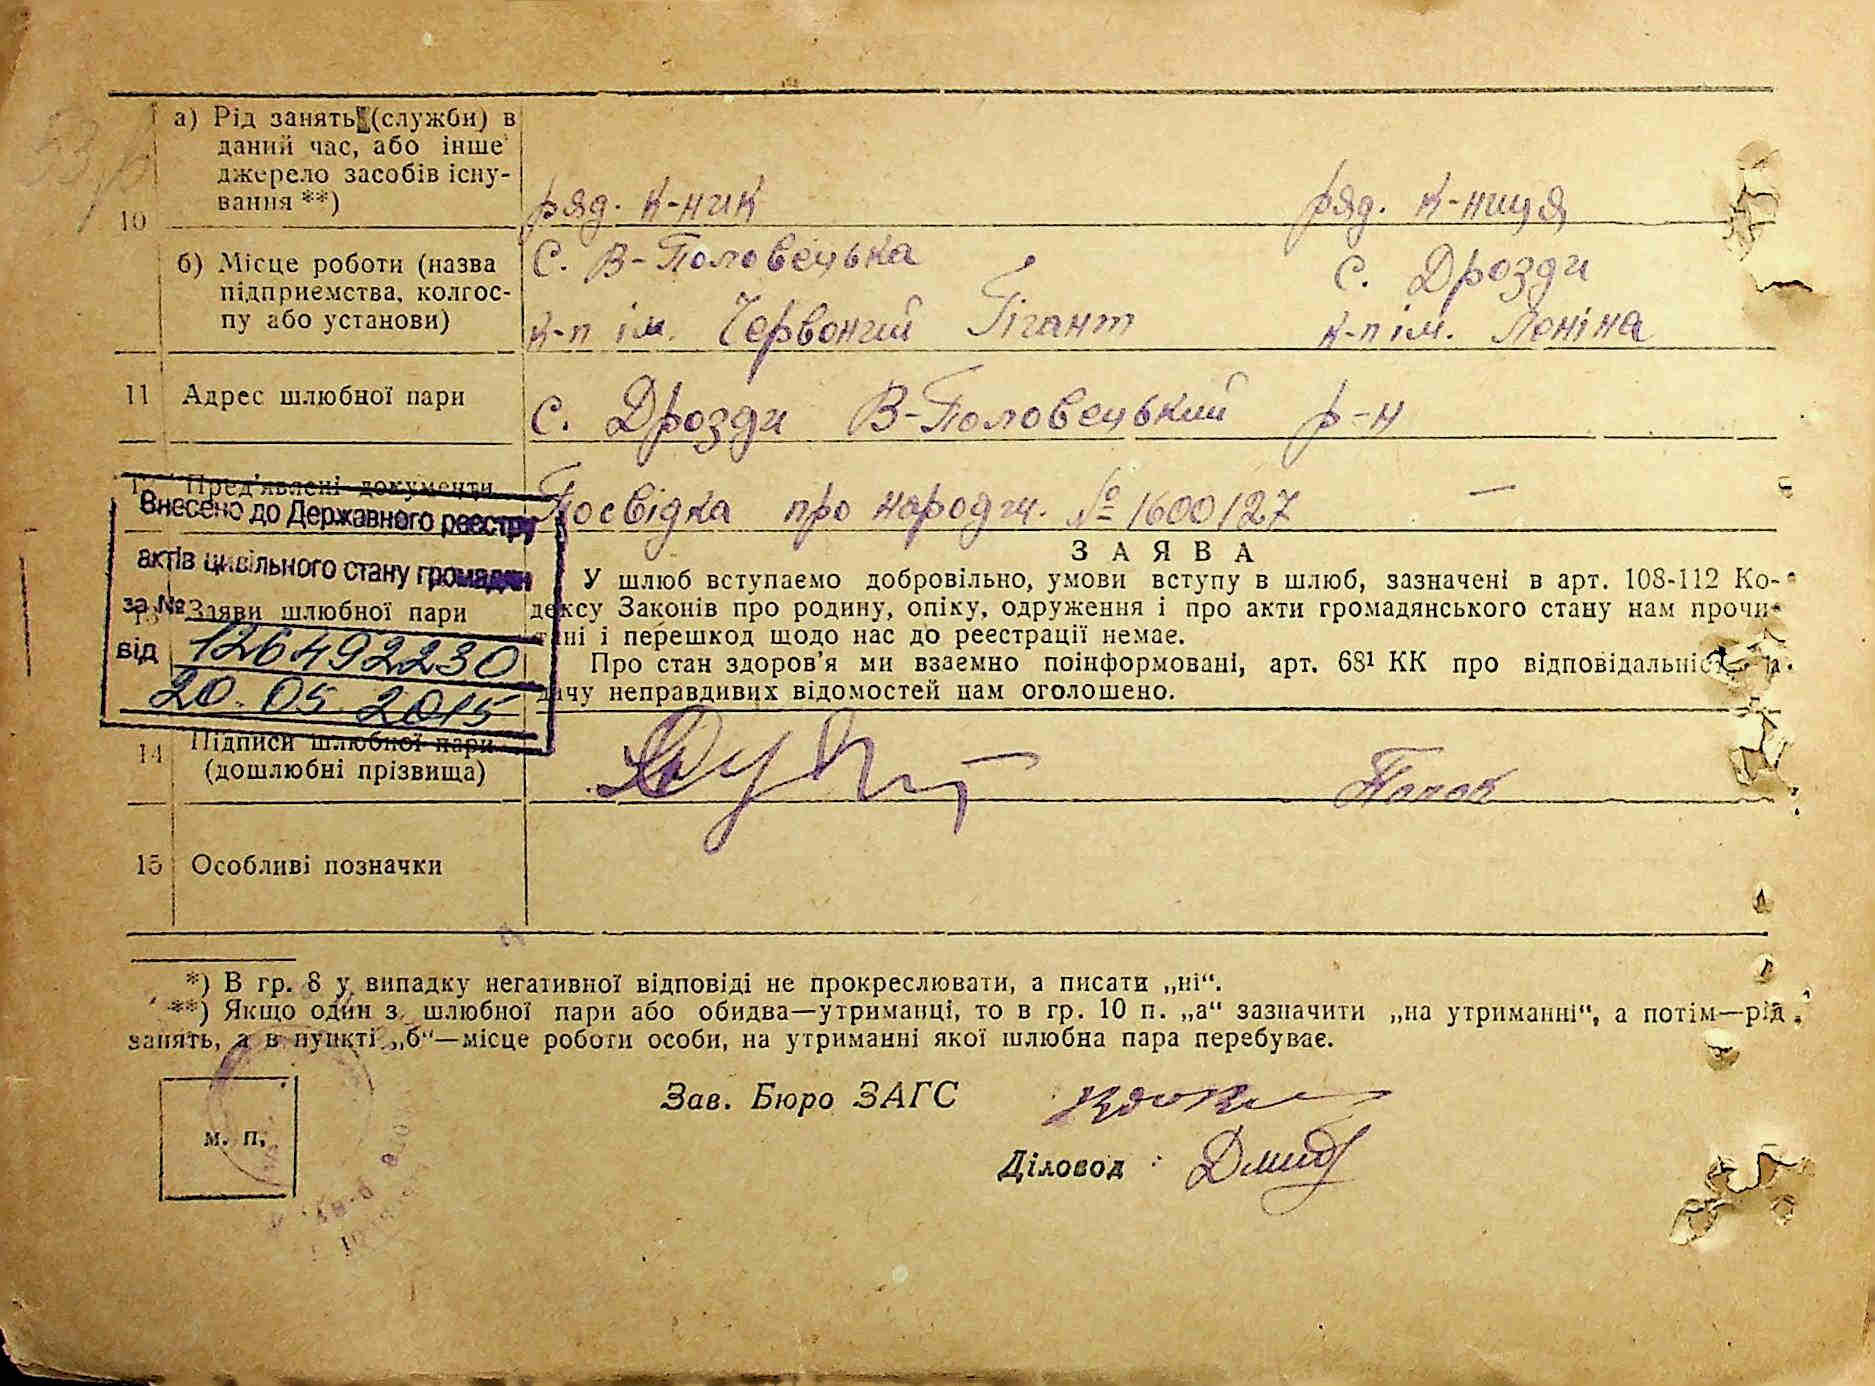 а) Рід занять (служби) в
даний час, або інше
джерело засобів існу-
вання **)
ряд. к-ник ряд. к-ниця
10
б) Місце роботи (назва
підприємства, колгос-
пу або установи)
с. В-Половецька с. Дрозди
к-п ім. Червоний Гігант к-п ім. Леніна
11 Адрес шлюбної пари
с. Дрозди В-Половецький р-н
Пред'явлені документи
Посвідка про народж. № 1600127 —
Внесено до Державного реєстру
актів цивільного стану громадян
за №
126492230
від
20.05.2015
13 Заяви шлюбної пари
ЗАЯВА
У шлюб вступаємо добровільно, умови вступу в шлюб, зазначені в арт. 108-112 Ко-
дексу Законів про родину, опіку, одруження і про акти громадянського стану нам прочи-
і перешкод щодо нас до реєстрації немає.
Про стан здоров'я ми взаємно поінформовані, арт. 68¹ КК про
неправдивих відомостей нам оголошено.
14 Підписи шлюбної пари
(дошлюбні прізвища)
15 Особливі позначки
*) В гр. 8 у випадку негативної відповіді не прокреслювати, а писати „ні“.
**) Якщо один з шлюбної пари або обидва—утриманці, то в гр. 10 п. „а“ зазначити „на утриманні“, а потім—рід
занять, а в пункті „б“—місце роботи особи, на утриманні якої шлюбна пара перебуває.
Зав. Бюро ЗАГС
м. п.
Діловод